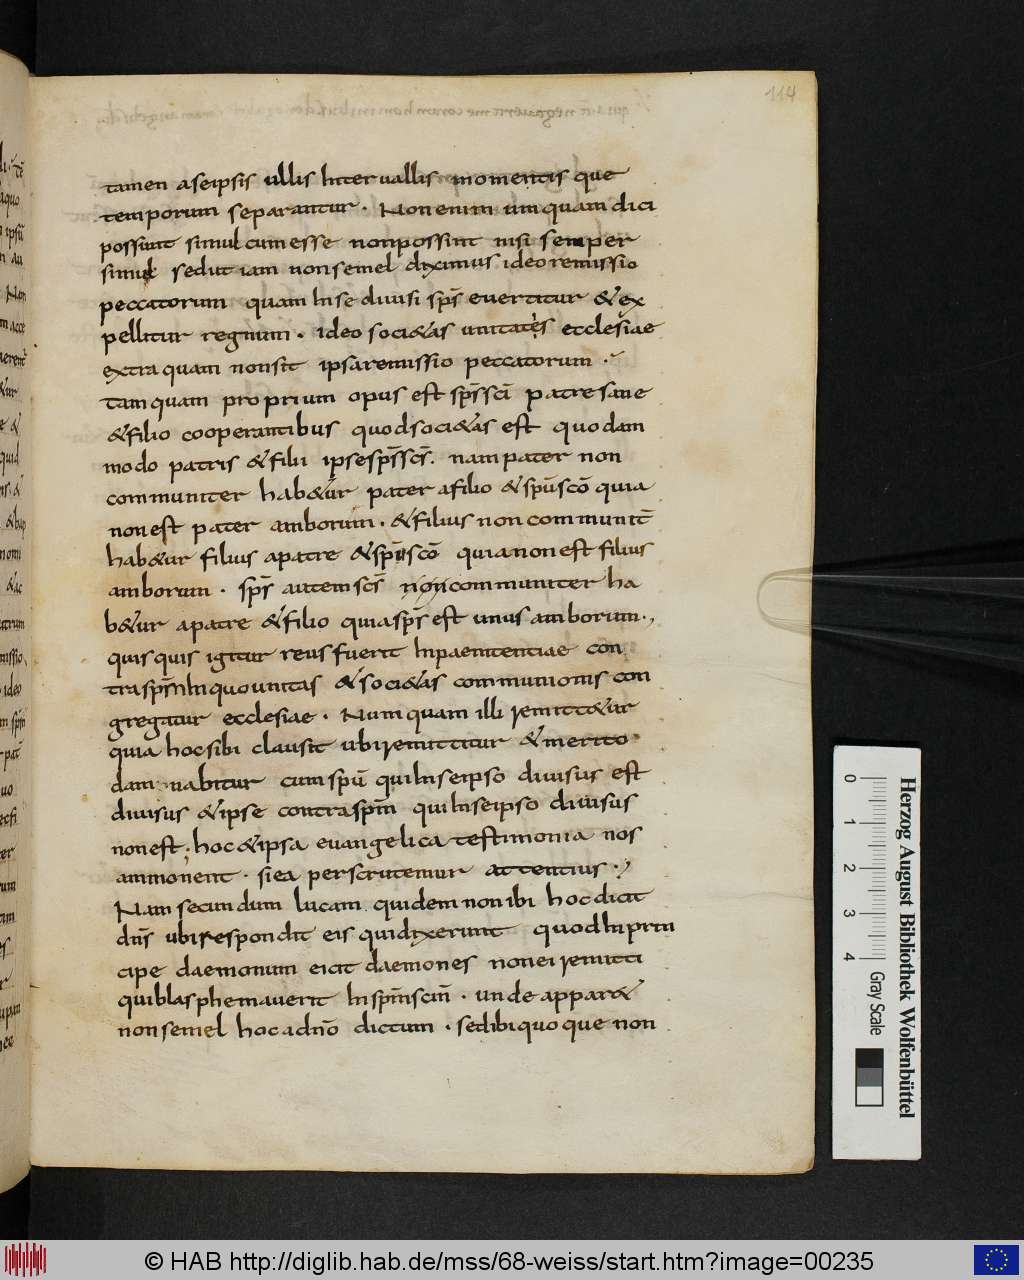 114
tamen a seipsis ullis intervallis momentis que
temporum separantur. Non enim umquam dici
possunt simul cum esse non possint nisi semper
simul sed ut iam non semel diximus ideo remissio
peccatorum quam in se divisi sp̄s evertitur & ex
pellitur regnum. ideo soci&as unitatis ecclesiae
extra quam non sit ipsa remissio peccatorum.
tamquam proprium opus est sp̄s sc̄i patre sane
& filio cooperantibus quod soci&as est quodam
modo patris & filii ipse sp̄s sc̄s. nam pater non
communiter hab&ur pater a filio & spū scō quia
non est pater amborum. & filius non communit̄
hab&ur filius a patre & spū scō quia non est filius
amborum. sp̄s autem sc̄s non communiter ha
b&ur a patre & filio quia sp̄s est unus amborum.
quisquis igitur reus fuerit inpaenitentiae con
tra sp̄m in quo unitas & soci&as communionis con
gregatur ecclesiae. Numquam illi remitt&ur
quia hoc sibi clausit ubi remittitur & merito
damnabitur cum spū qui in se ipso divisus est
divisus & ipse contra sp̄m qui in se ipso divisus
non est. hoc & ipsa evangelica testimonia nos
ammonent. si ea perscrutemur attentius.
Nam secundum lucam quidem non ibi hoc dicit
dn̄s ubi respondit eis qui dixerunt quod in prin
cipe daemonum eicit daemones non ei remitti
qui blasphemaverit in sp̄m sc̄m. unde appar&
non semel hoc a dn̄o dictum. sed ibi quoque non
0 1 2 3 4
Gray Scale
Herzog August Bibliothek Wolfenbüttel
© HAB http://diglib.hab.de/mss/68-weiss/start.htm?image=00235